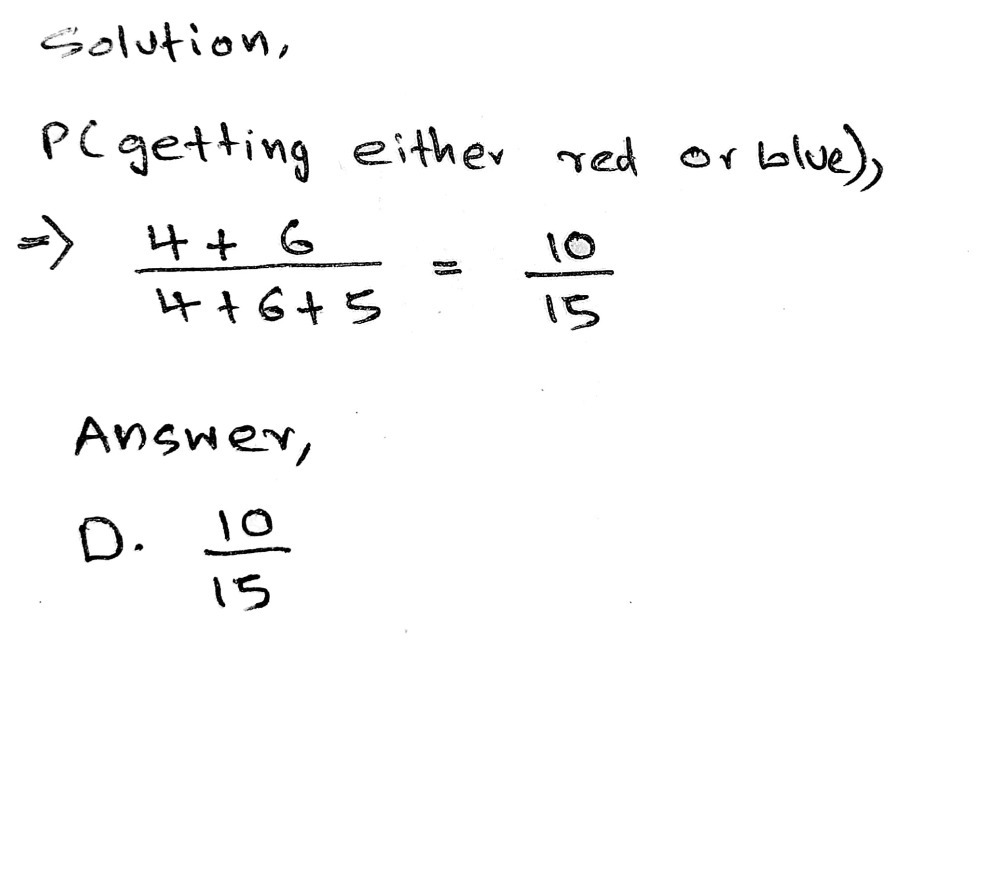 Solution,
P(getting either red or blue),
=> 4 + 6 / 4 + 6 + 5 = 10 / 15
Answer,
D. 10 / 15